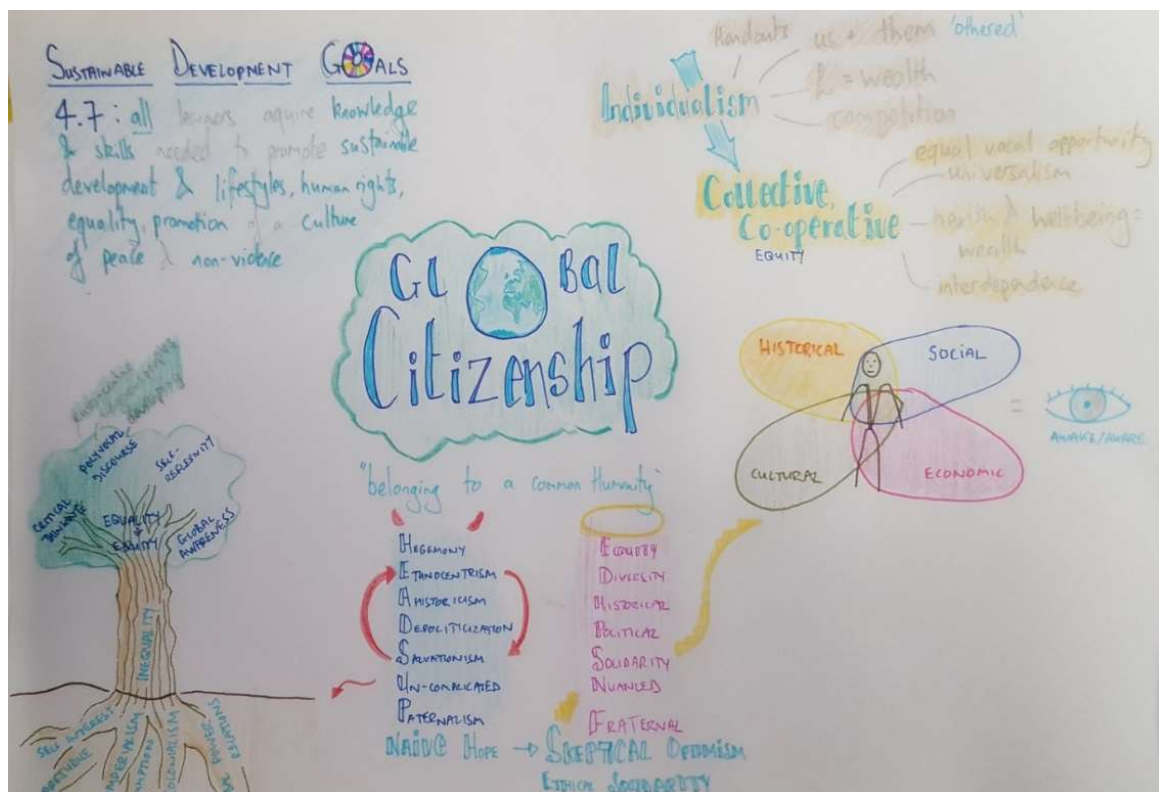 SUSTAINABLE DEVELOPMENT GOALS
4.7: all learners aquire knowledge
& skills needed to promote sustainable
development & lifestyles, human rights,
equality, promotion of a culture
of peace & non-violence
Handouts
us + them 'othered'
Individualism
£ = wealth
competition
equal vocal opportunity
universalism
Collective,
Co-operative
EQUITY
health & wellbeing =
wealth
interdependence
GLOBAL
Citizenship
"belonging to a common Humanity"
HISTORICAL
SOCIAL
CULTURAL
ECONOMIC
=
AWAKE/AWARE
POLYVOCAL
DISCOURSE
SELF-
REFLEXIVITY
CRITICAL
EQUALITY
&
EQUITY
GLOBAL
AWARENESS
INEQUALITY
SELF INTEREST
IMPERIALISM
COLONIALISM
POWER
HEGEMONY
ETHNOCENTRISM
AHISTORICISM
DEPOLITICIZATION
SALVATIONISM
UN-COMPLICATED
PATERNALISM
EQUITY
DIVERSITY
HISTORICAL
POLITICAL
SOLIDARITY
NUANCED
FRATERNAL
NAIVE HOPE → SKEPTICAL OPTIMISM
ETHICAL SOLIDARITY